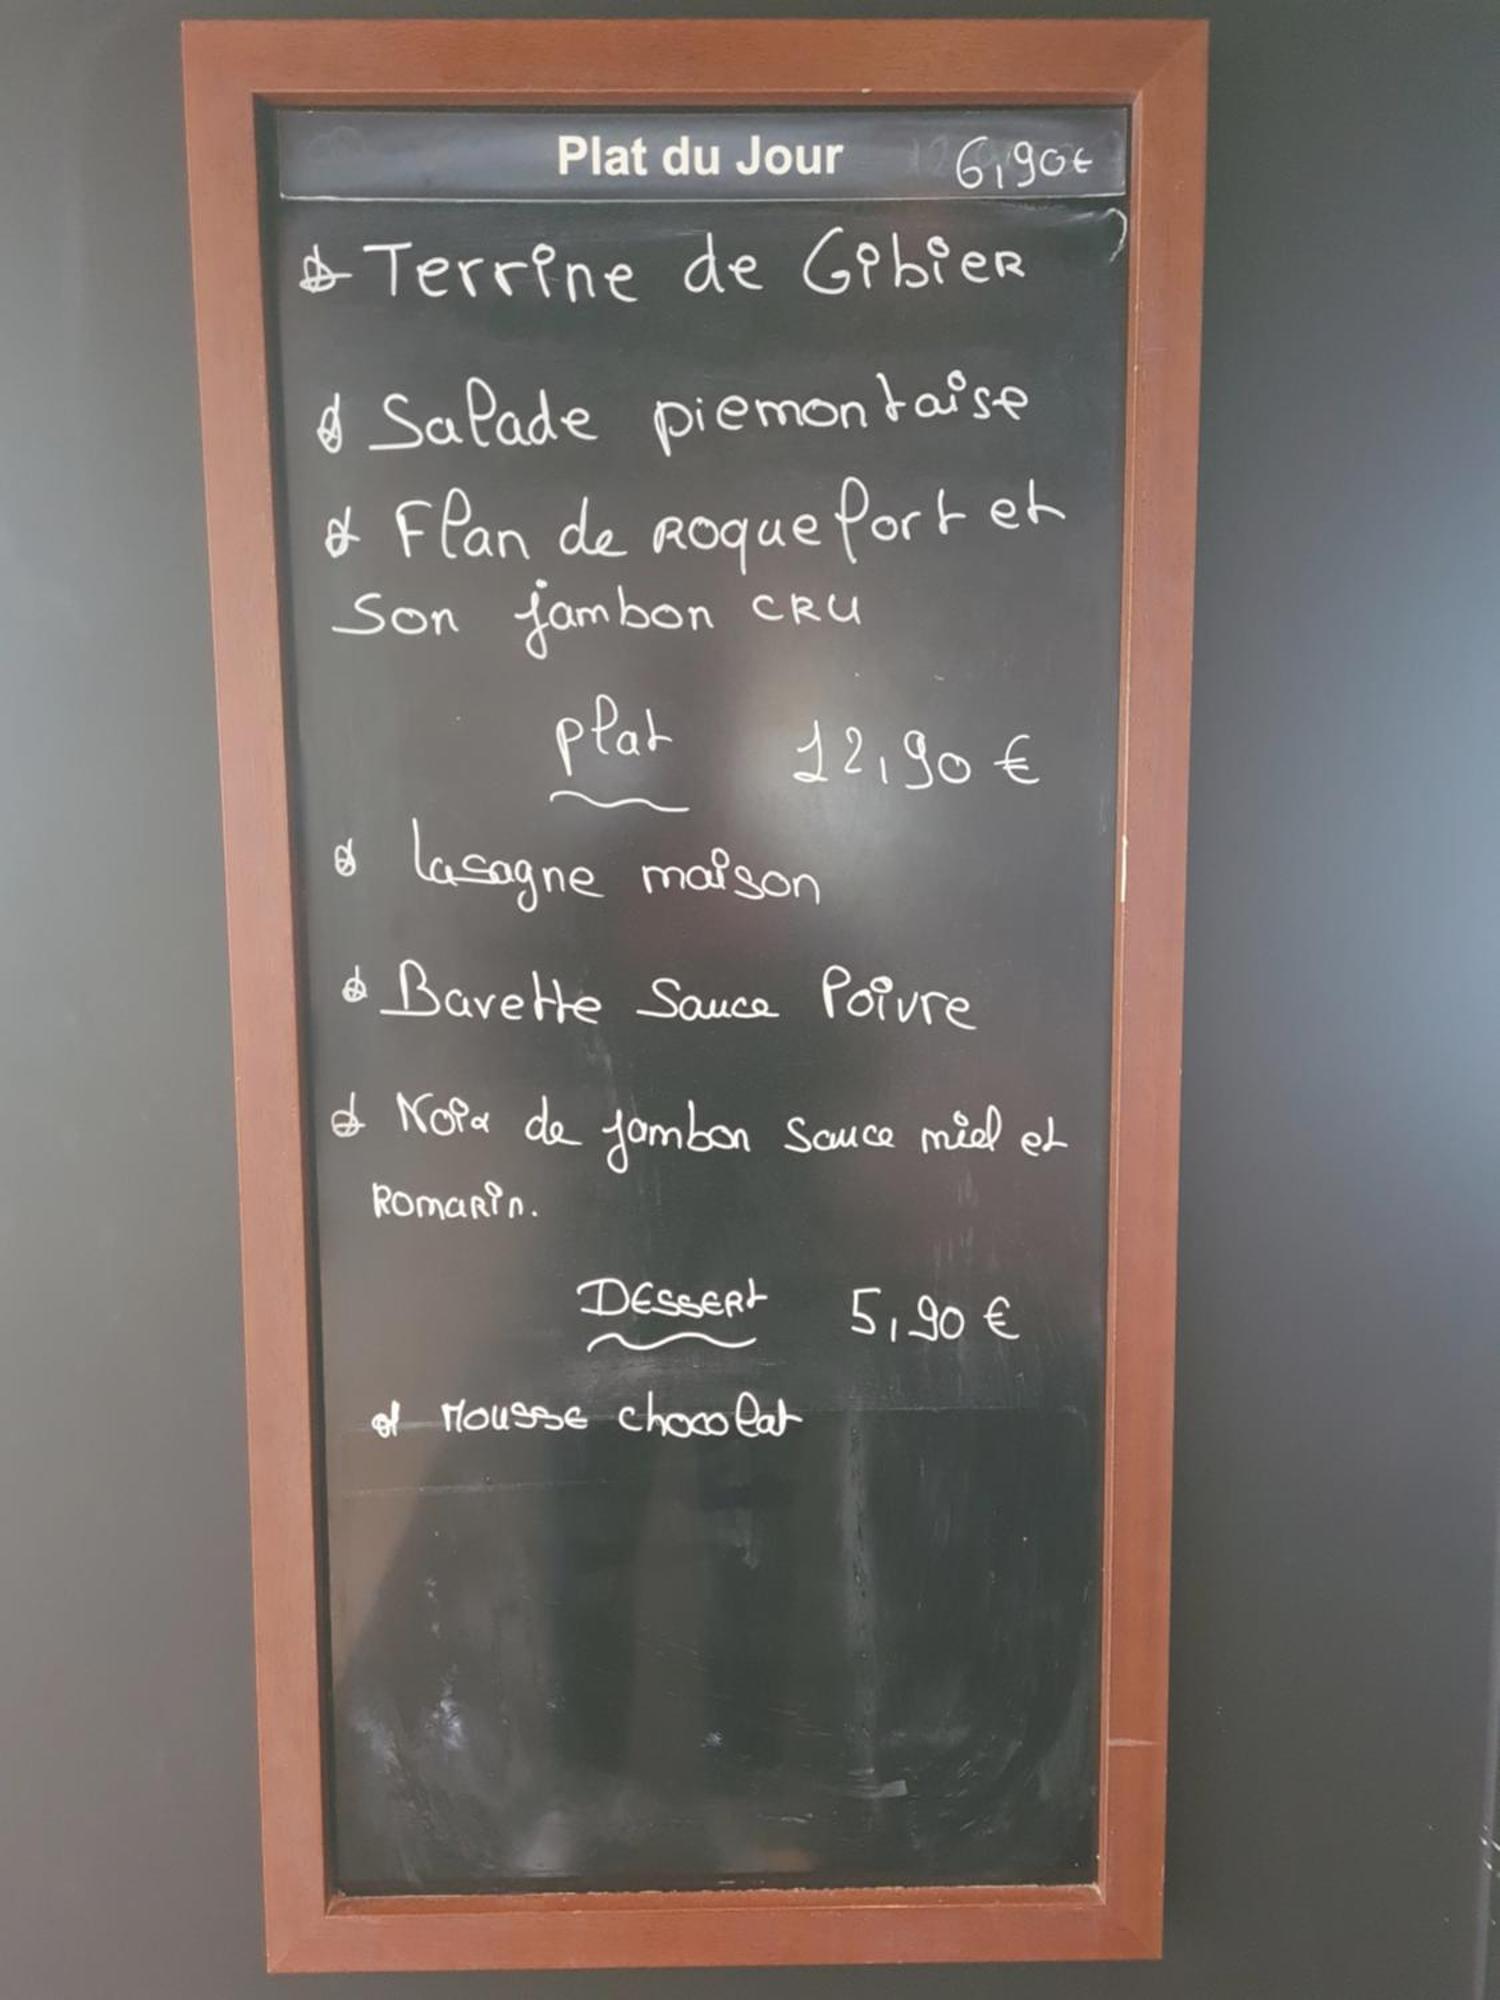 Plat du Jour 6,90€
Terrine de Gibier
Salade piemontaise
Flan de Roquefort et
son jambon CRU
plat 12,90 €
lasagne maison
Bavette Sauce Poivre
Noix de jambon sauce miel et
Romarin.
DESSERt 5,90 €
Mousse chocolat